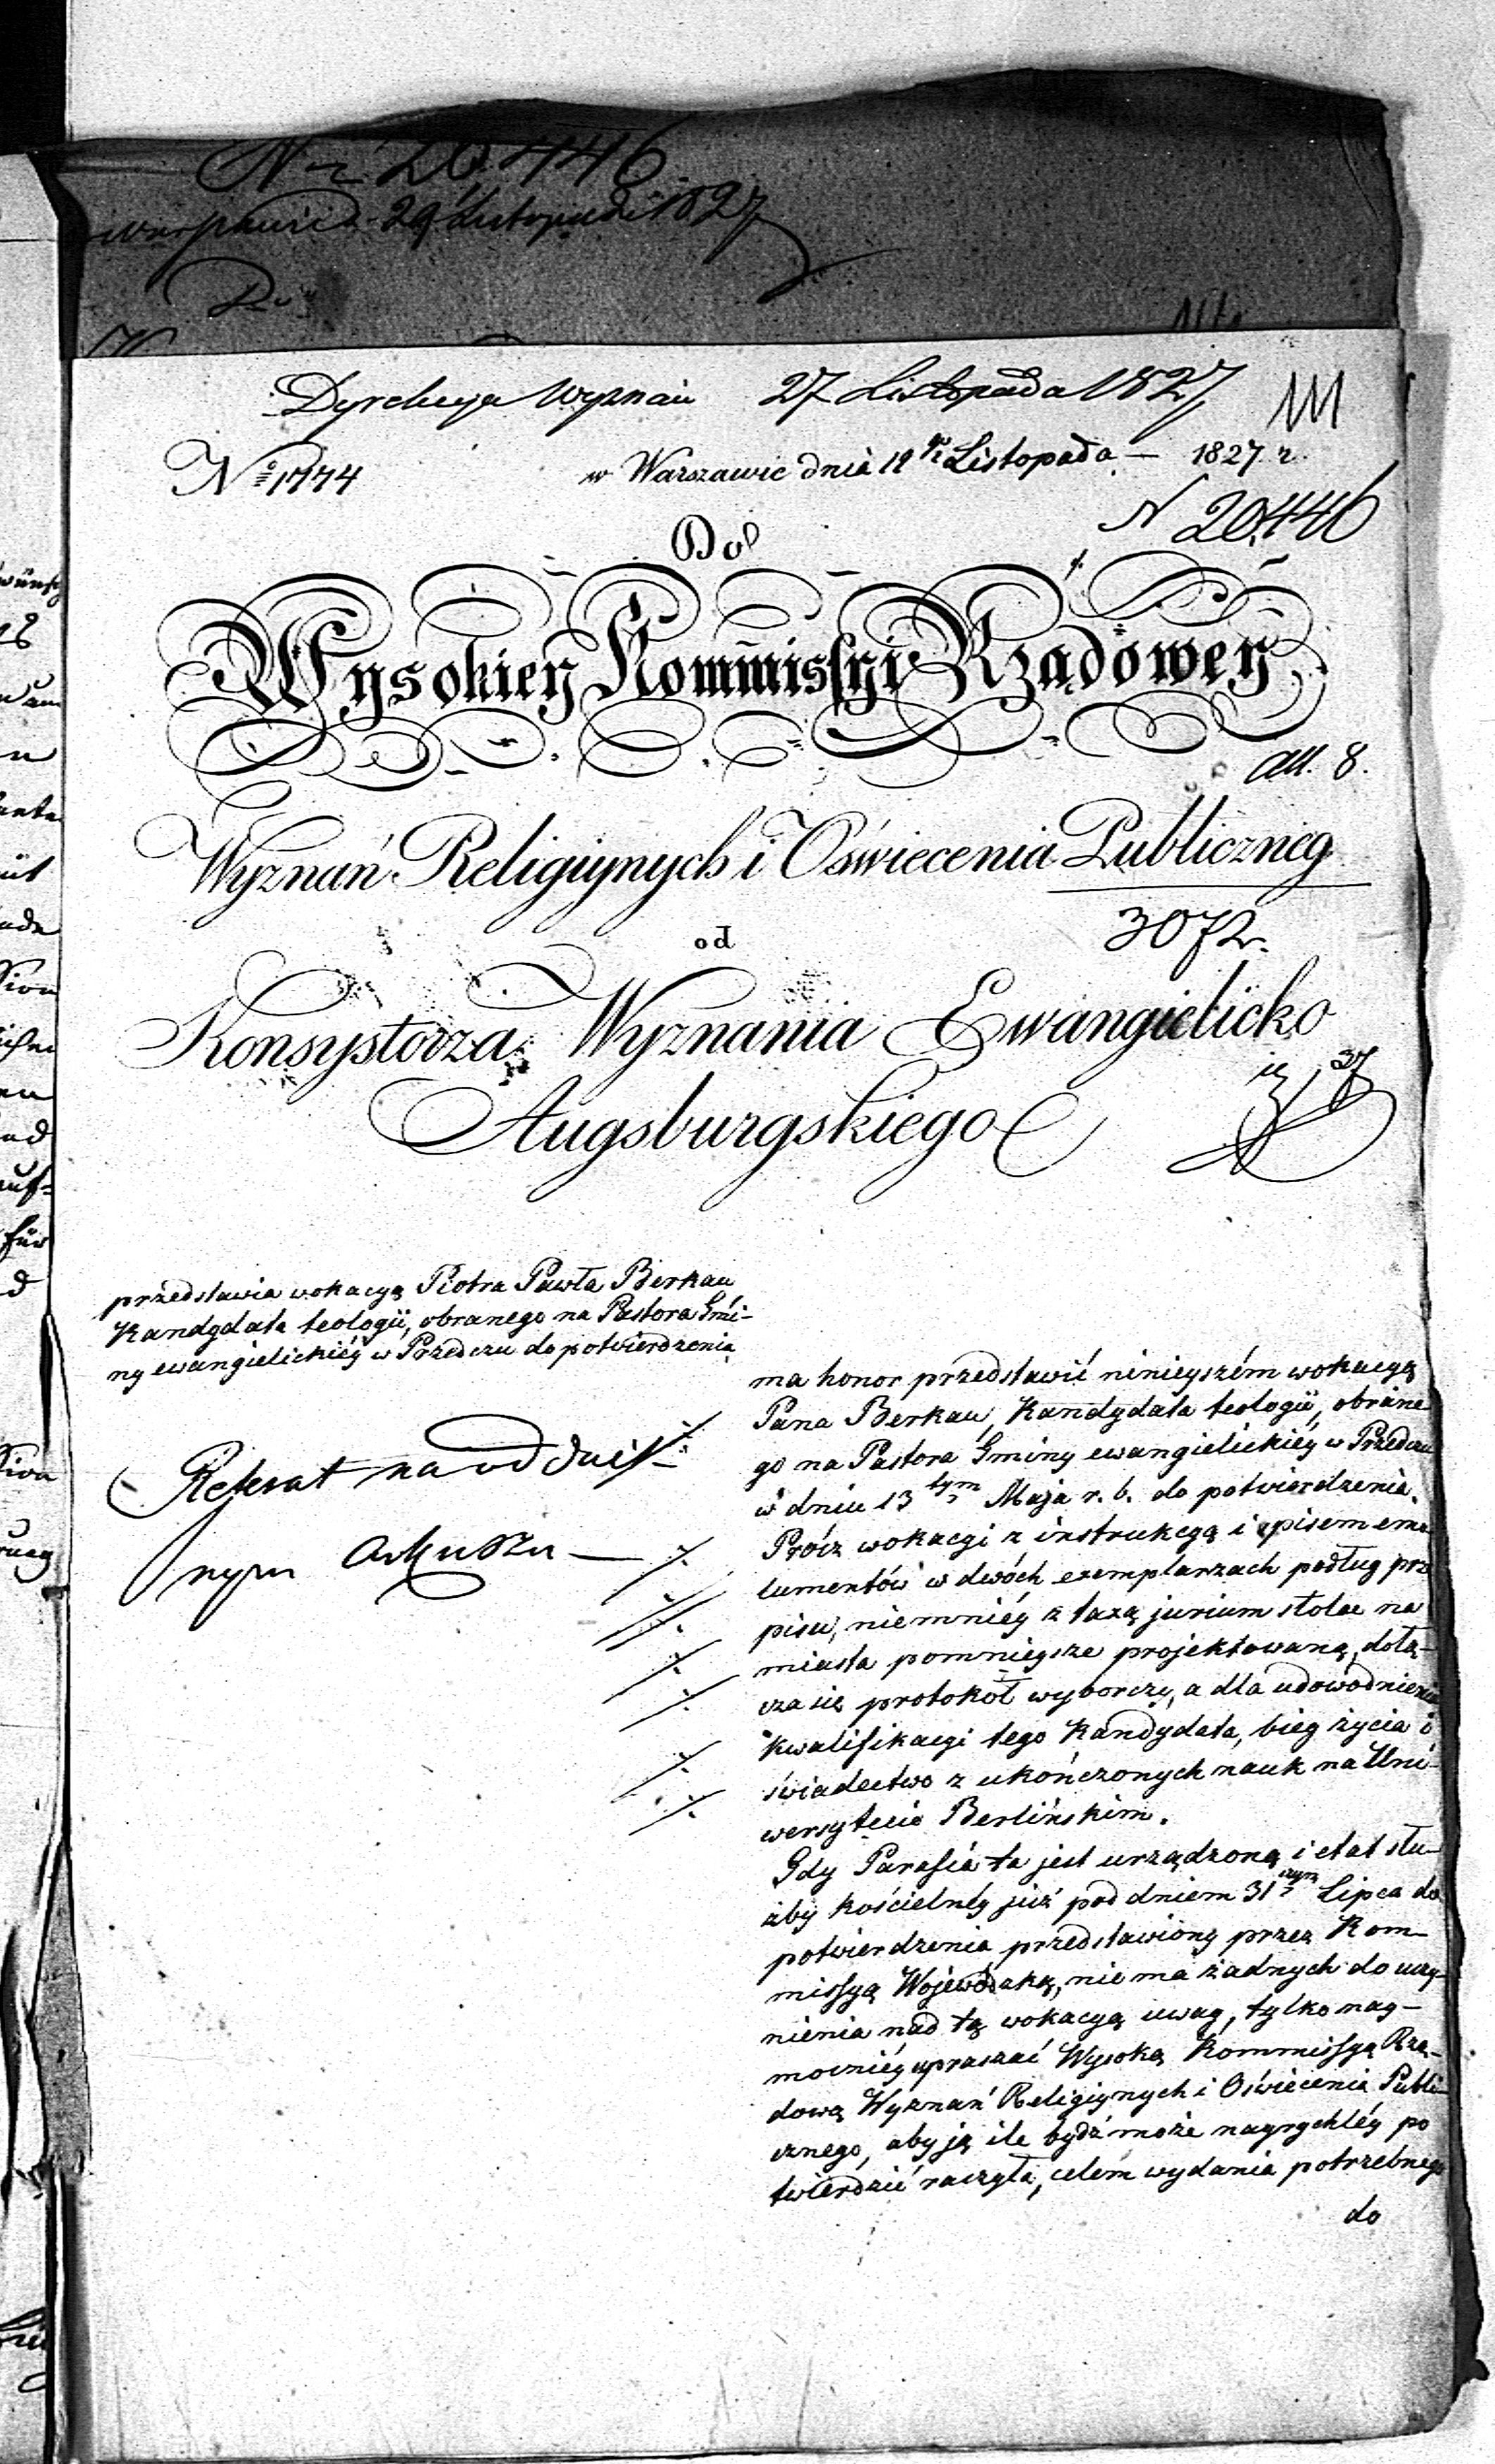 Nr 20446
Warszawie d. 29 Listopada 1827
Do
Dyrekcya Wyznań 27 Listopada 1827
111
No 1774 w Warszawie dnia 19go Listopada — 1827 r.
N 20446
Do
Wysokiey Kommissyi Rządowey
all. 8.
Wyznań Religiynych i Oświecenia Publiczneg
3072.
od
Konsystorza Wyznania Ewangielicko
Augsburgskiego
przedstawia wokacyą Piotra Pawła Berkau
Kandydata teologii, obranego na Pastora Gmi-
ny ewangielickiéy w Przedczu do potwierdzenia
Referat na oddziel-
nym arkuszu —
ma honor przedstawić ninieyszém wokacyą
Pana Berkau, Kandydata teologii, obrane
go na Pastora Gminy ewangielickiéy w Przedczu
w dniu 13tym Maja r. b. do potwierdzenia.
Prócz wokacyi z instrukcyą i spisem emo
lumentów w dwóch exemplarzach podług prze
pisu, niemniéy z taxą jurium stolae na
miasta pomnieysze projektowaną, dołą-
cza się protokół wyborczy, a dla udowodnienia
kwalifikacyi tego Kandydata, bieg życia i
świadectwo z ukończonych nauk na Uni-
wersytecie Berlińskim.
Gdy Parafia ta jest urządzoną i etat słu-
żby kościelnéy już pod dniem 31szym Lipca do
potwierdzenia przedstawiony przez Kom-
missyą Wojewódzką, nie ma żadnych do uczy-
nienia nad tą wokacyą uwag, tylko nay-
mocniéy upraszać Wysoką Kommissyą Rzą-
dową Wyznań Religiynych i Oświecenia Publi-
cznego, aby ją ile bydź może nayrychléy po
twierdzić raczyła, celem wydania potrzebnego
do